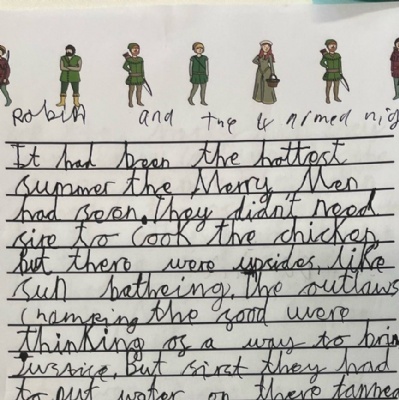 Robin and the 4 armed nig
It had been the hottest
summer the Merry Men
had seen. They didn't need
fire to cook the chicken,
but there were upsides, like
sun batheing. The outlaws
champing the good were
thinking of a way to brin
Jusaice, but first they had
to put water on there tanned